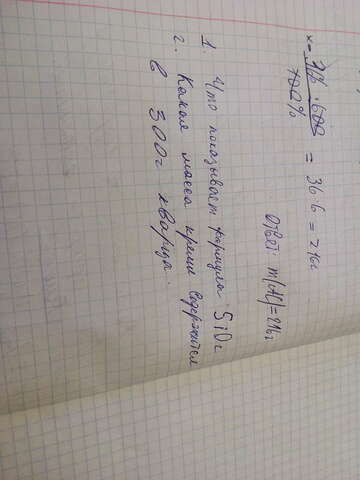 x =
100%
= 36·6 = 216г
Ответ: m(Al)=216г
1. Что показывает формула SiO2
2. Какая масса кремн. содержится
в 300г кварца.